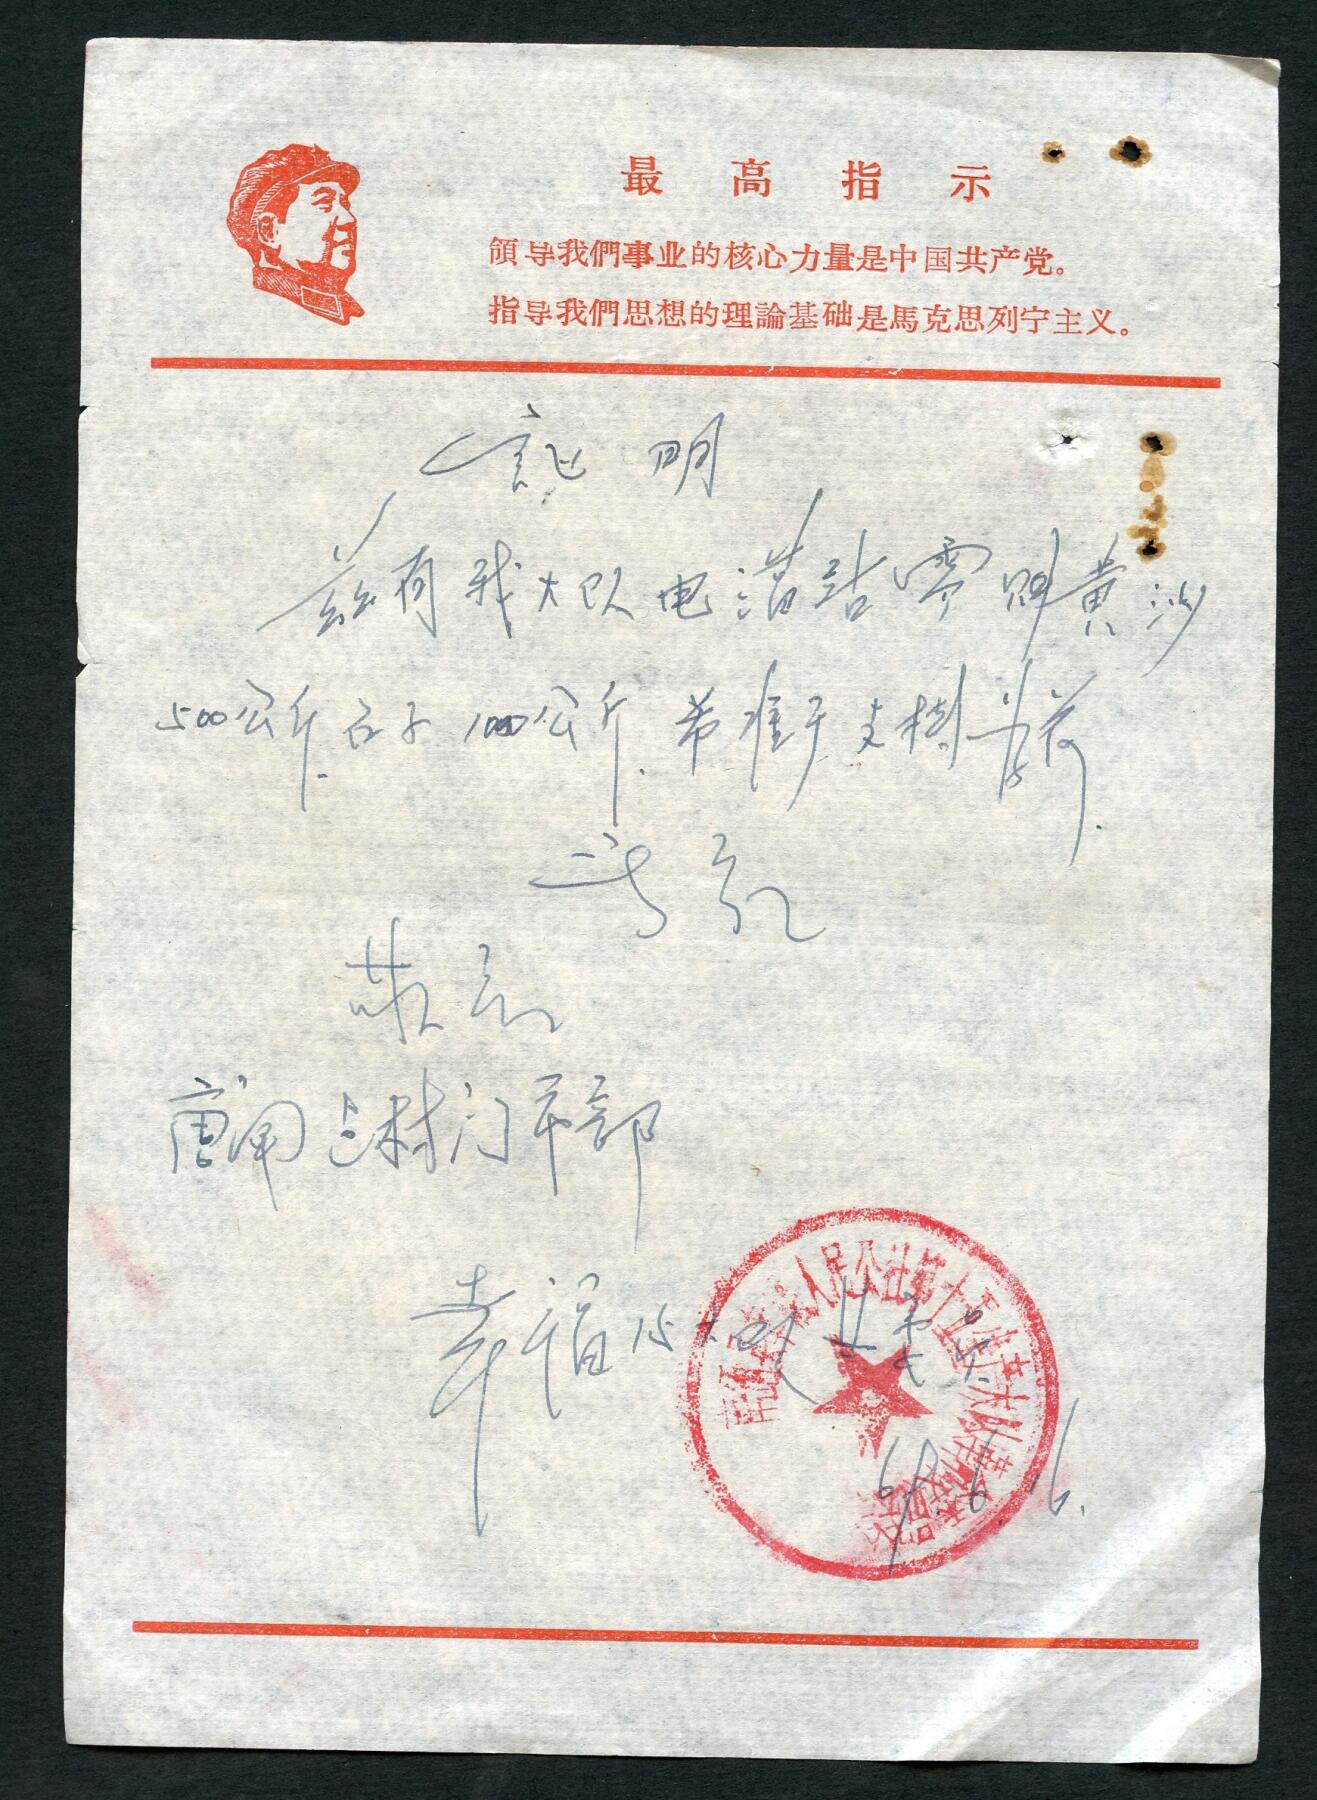 最高指示
領导我們事业的核心力量是中国共产党。
指导我們思想的理論基础是馬克思列宁主义。
証明
兹有我大队电灌站需用黄沙
500公斤.石子1000公斤.希准予支持为荷.
此致
敬礼
唐闸建材门市部
幸福15大队
人民公社第十五大队革
69.6.16.